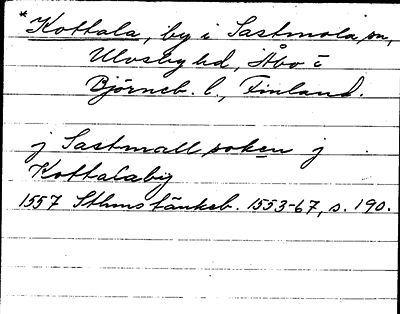 *Kottala, by i Sastmola sn,
Ulvsby hd, Åbo o
Björneb. l., Finland.
j Sastmall soken j
Kottalaby
1557 Sthms tänkeb. 1553-67, s. 190.